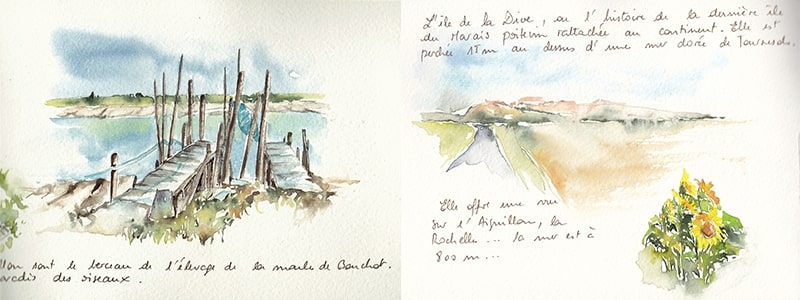 L'île de la Dive, ou l'histoire de la dernière île
du Marais poitevin rattachée au continent. Elle est
perchée 15m au dessus d'une mer dorée de Tournesols.
Elle offre une vue
sur l'Aiguillon, la
Rochelle... la mer est à
800 m...
sont le berceau de l'élevage de la moule de Bouchot.
des oiseaux.